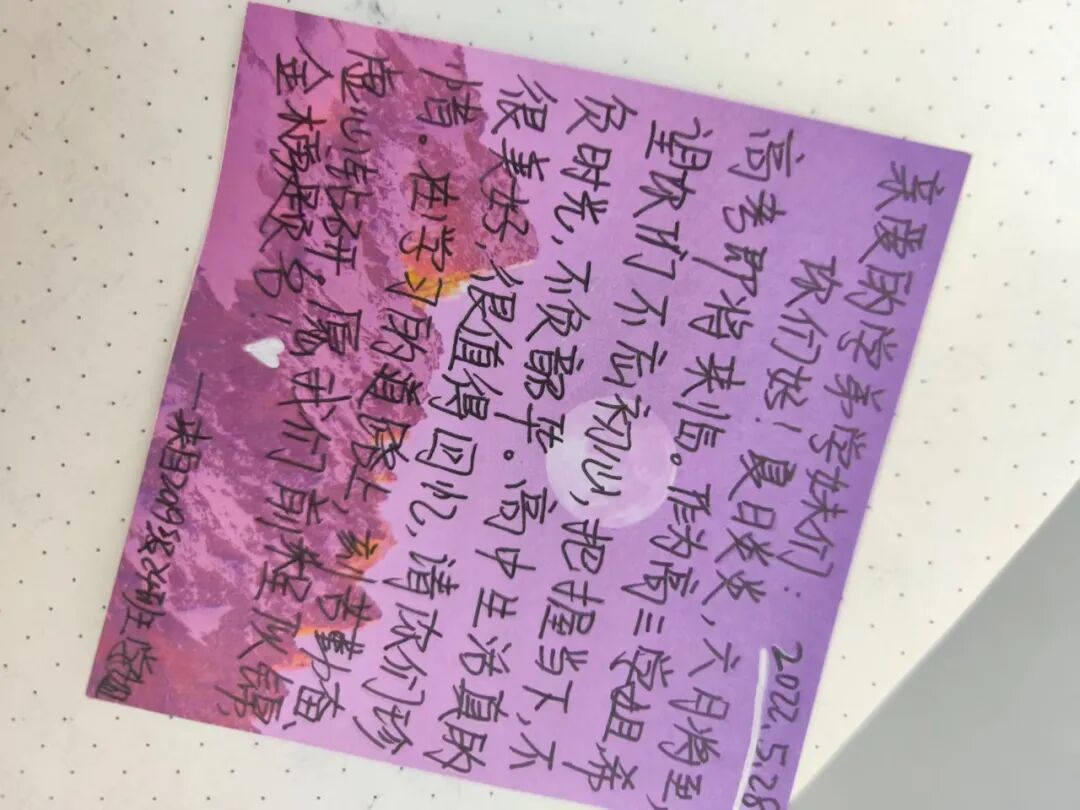 2022.5.28
亲爱的学弟学妹们：
你们好！夏日炎炎，六月将至，
高考即将来临。作为高三学姐，希
望你们不忘初心，把握当下，不
负时光，不负韶华。高中生活真的
很美好，很值得回忆，请你们珍
惜。在学习的道路上，刻苦勤奋、
虚心钻研。愿我们前程似锦，
金榜题名！
——来自2095824的王学姐